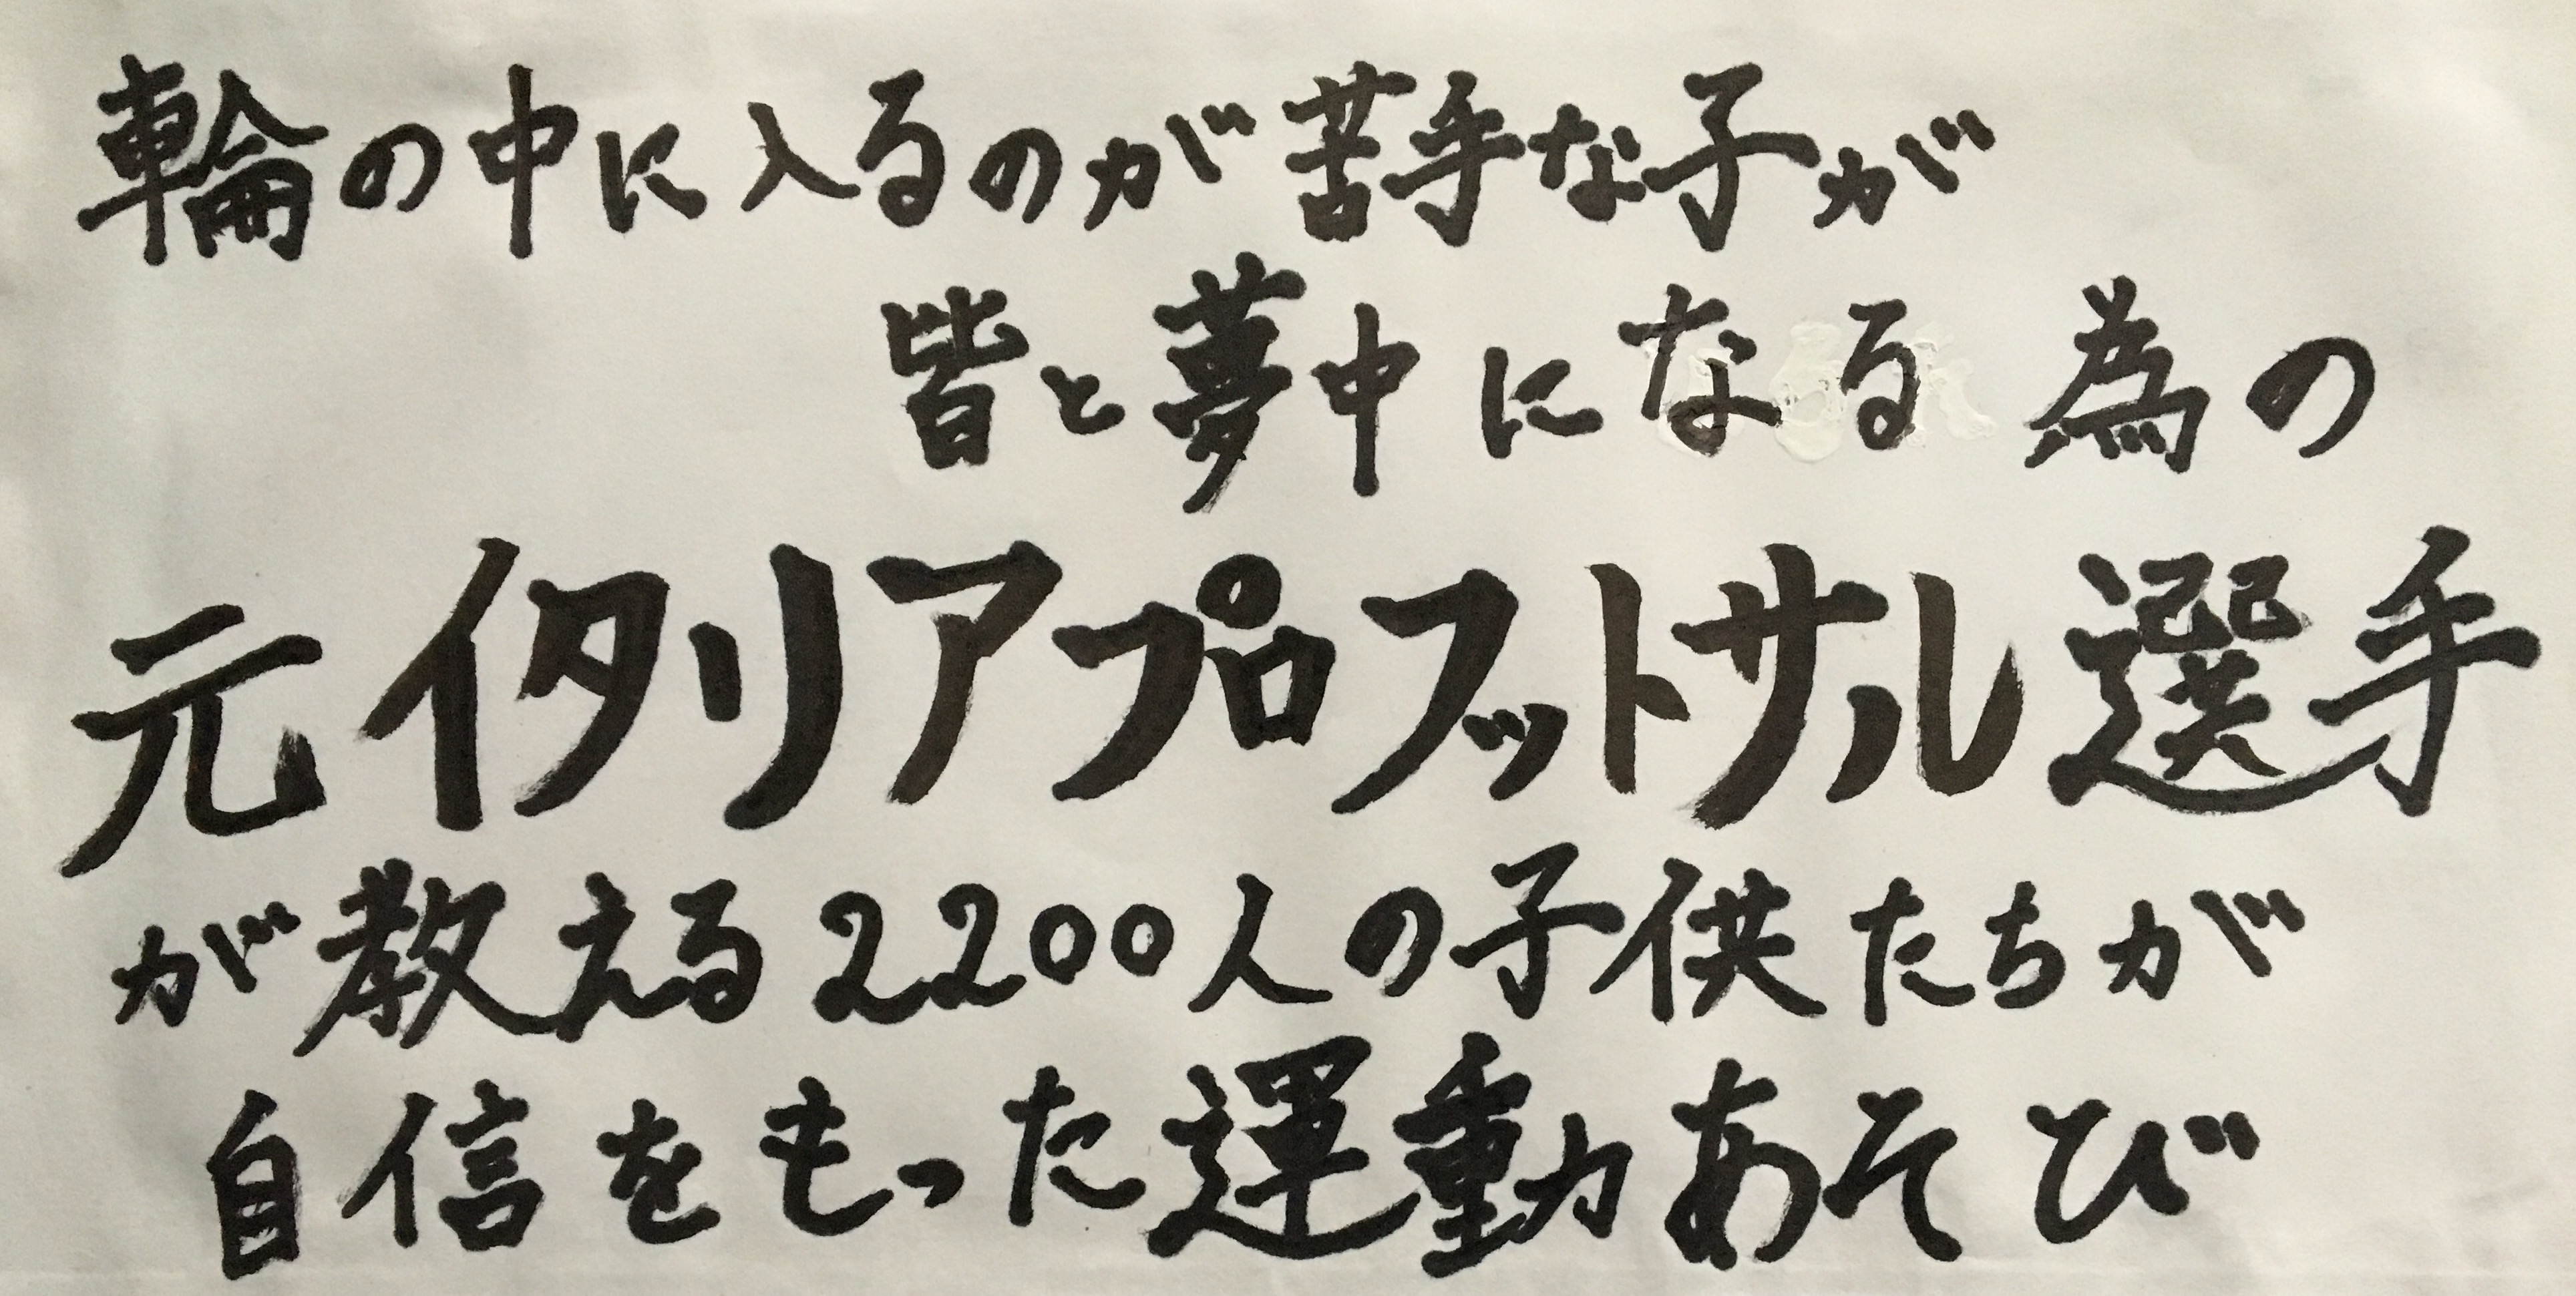 輪の中に入るのが苦手な子が
皆と夢中になる為の
元イタリアプロフットサル選手
が教える2200人の子供たちが
自信をもった運動あそび